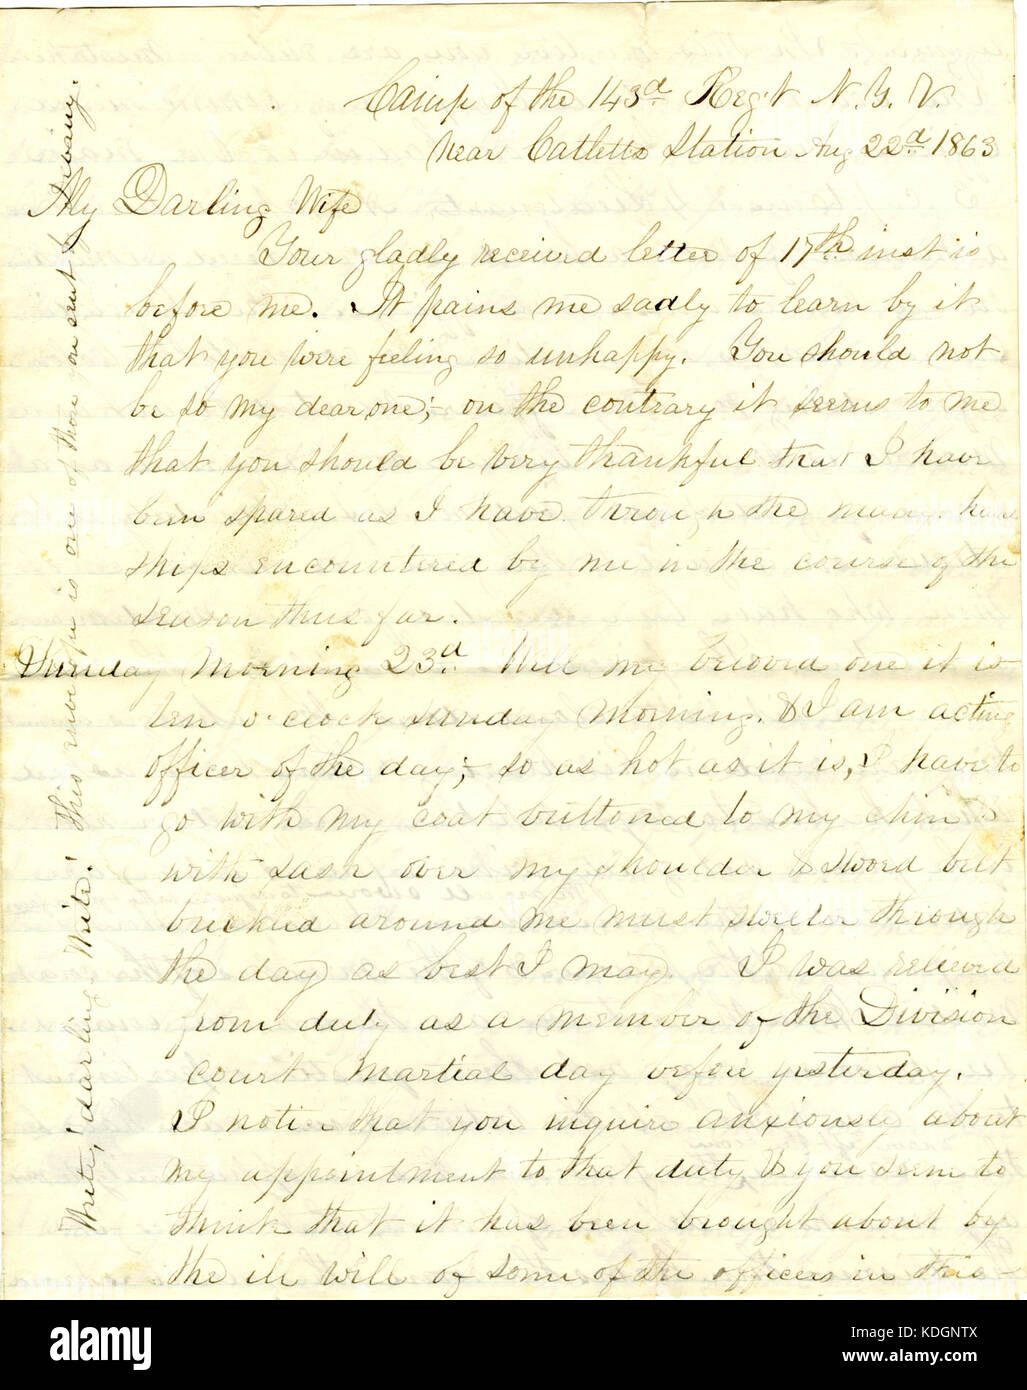 Camp of the 143d Reg't N. Y. V.
near Catletts Station Aug 22d 1863
My Darling Wife
Your gladly received letter of 17th inst is
before me. It pains me sadly to learn by it
that you were feeling so unhappy. You should not
be so my dear one;- on the contrary it seems to me
that you should be very thankful that I have
been spared as I have through the many hard
ships encountered by me in the course of the
season thus far.
Sunday Morning 23d. Well my beloved one it is
ten o'clock sunday morning. & I am acting
officer of the day;- so as hot as it is, I have to
go with my coat buttoned to my chin &
with sash over my shoulder & sword belt
buckled around me must swelter through
the day as best I may. I was relieved
from duty as a member of the Division
court martial day before yesterday.
I notice that you inquire anxiously about
my appointment to that duty & you seem to
think that it has been brought about by
the ill will of some of the officers in this-
Write, darling Write! This envelope is one of those you sent by
alamy
Image ID: KDGNTX
www.alamy.com